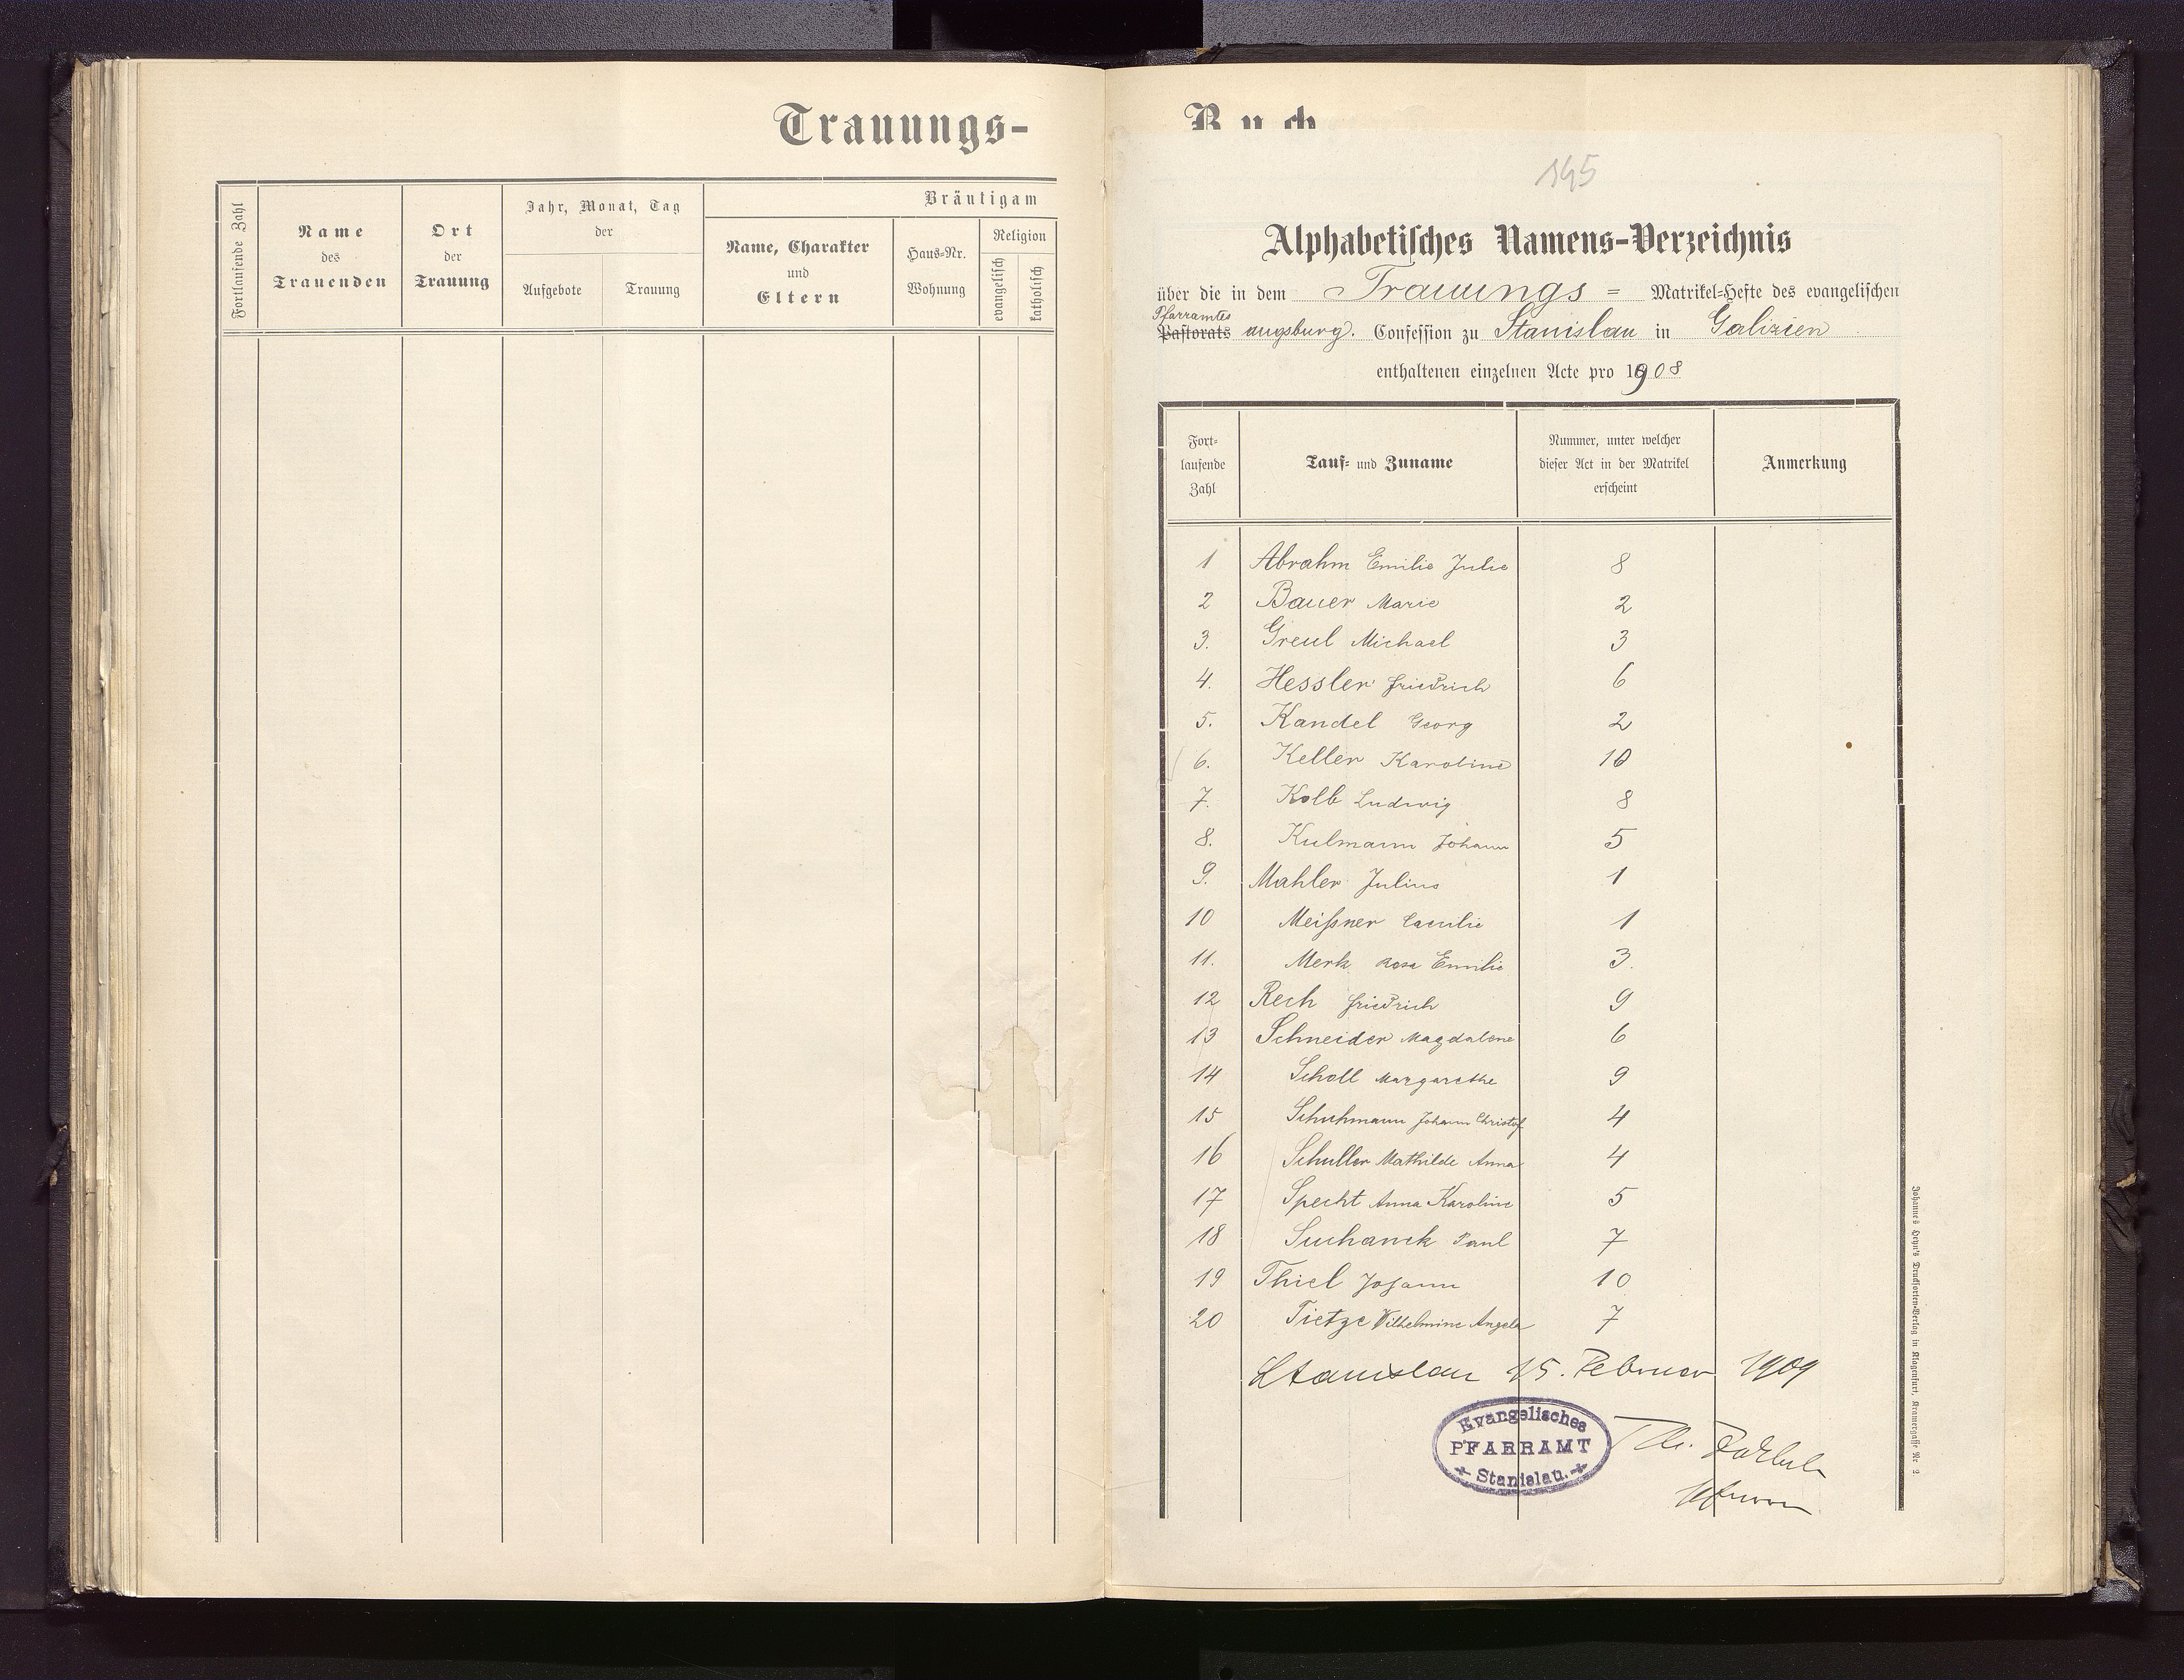 Trauungs-
Fortlaufende Zahl
Name
des
Trauenden
Ort
der
Trauung
Jahr, Monat, Tag
der
Aufgebote
Trauung
Bräutigam
Name, Charakter
und
Eltern
Haus-Nr.
Wohnung
Religion
evangelisch
katholisch
Buch
145
Alphabetisches Namens-Verzeichnis
über die in dem Trauungs = Matrikel-Hefte des evangelischen
Pfarramtes
Pastorats augsburg. Confession zu Stanislau in Galizien
enthaltenen einzelnen Acte pro 1908
Fort-
laufende
Zahl
Tauf- und Zuname
Nummer, unter welcher
dieser Act in der Matrikel
erscheint
Anmerkung
1 Abrahm Emilie Julie 8
2 Bauer Marie 2
3. Greul Michael 3
4. Hessler Friedrich 6
5. Kandel Georg 2
6. Keller Karoline 10
7. Kolb Ludwig 8
8. Kulmann Johann 5
9. Mahler Julius 1
10 Meißner Caecilie 1
11. Merk Rosa Emilie 3.
12 Rech Friedrich 9
13 Schneider Magdalene 6
14 Scholl Margarethe 9
15 Schuhmann Johann Christof 4
16 Schuller Mathilde Anna 4
17 Specht Anna Karoline 5
18 Suchanek Paul 7
19 Thiel Johann 10
20 Tietze Wilhelmine Angela 7
Stanislau 15. Februar 1909
Evangelisches
PFARRAMT
Stanislau.
Th.
Johannes Heyn's Drucksorten-Verlag in Klagenfurt, Kramergasse Nr. 2.